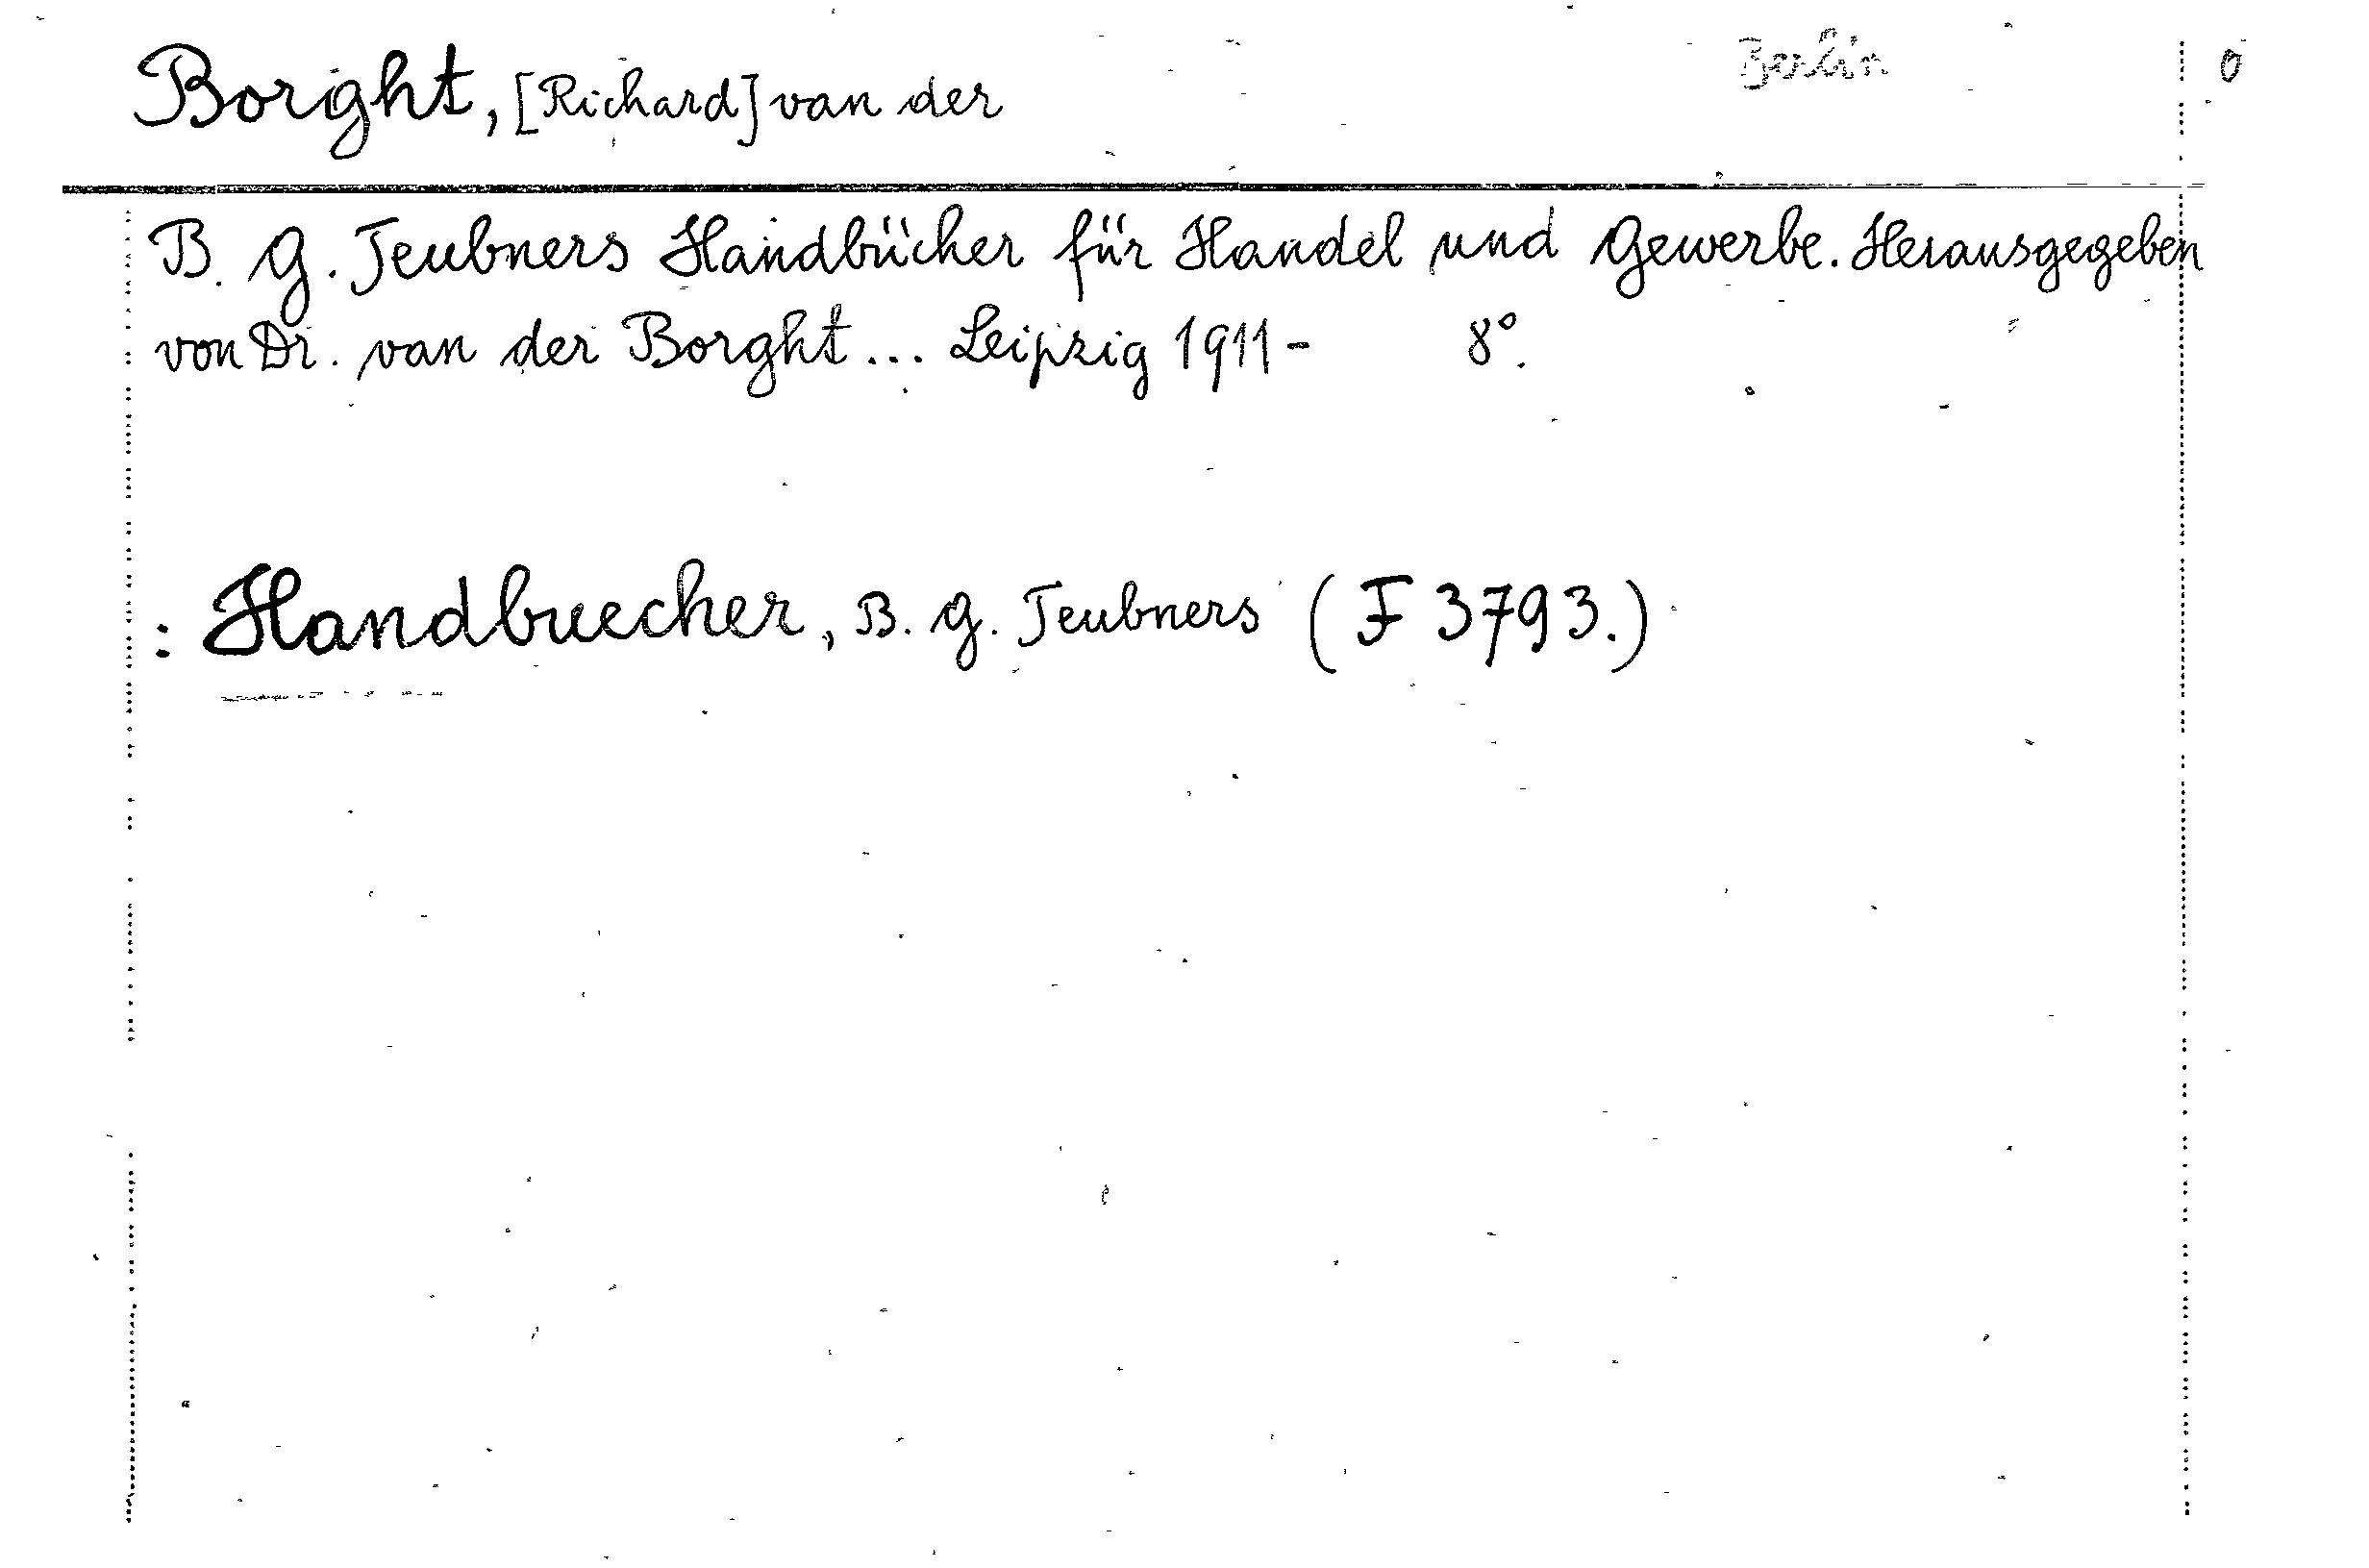 Borght, [Richard] van der Berlin 0
B. G. Teubners Handbücher für Handel und Gewerbe. Herausgegeben
von Dr. van der Borght... Leipzig 1911- 8°.
: Handbuecher, B. G. Teubners (F 3793.)